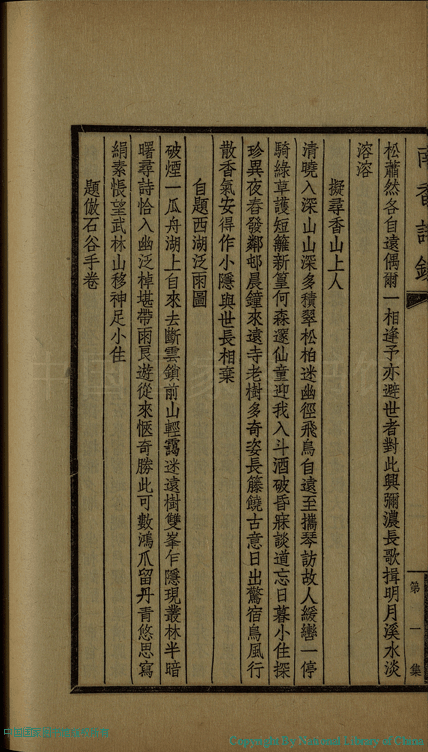 南香詩鈔
第一集
松蕭然各自遠偶爾一相逢予亦避世者對此興彌濃長歌揖明月溪水淡
溶溶
擬尋香山上人
清曉入深山山深多積翠松柏迷幽徑飛鳥自遠至攜琴訪故人緩轡一停
騎綠草護短籬新篁何森邃仙童迎我入斗酒破昏寐談道忘日暮小住探
珍異夜舂發鄰邨晨鐘來遠寺老樹多奇姿長藤饒古意日出驚宿鳥風行
散香氣安得作小隱與世長相棄
自題西湖泛雨圖
破煙一瓜舟湖上自來去斷雲鎖前山輕靄迷遠樹雙峯乍隱現叢林半暗
曙尋詩恰入幽泛棹堪帶雨良遊從來愜奇勝此可數鴻爪留丹青悠思寫
絹素悵望武林山移神足小住
題倣石谷手卷
中国国家
Copyright By National Library of China